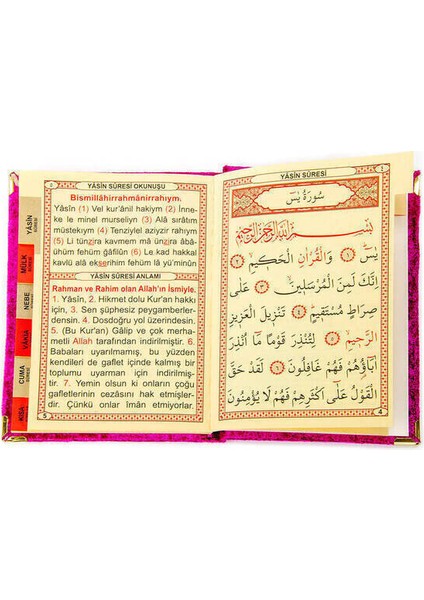 YÂSÎN SÛRESİ
سُورَةُ يٰسٓ
بِسْمِ اللّٰهِ الرَّحْمٰنِ الرَّحِيمِ
يٰسٓ ﴿١﴾ وَالْقُرْاٰنِ الْحَكِيمِ ﴿٢﴾
اِنَّكَ لَمِنَ الْمُرْسَلِينَ ﴿٣﴾ عَلٰى
صِرَاطٍ مُسْتَقِيمٍ ﴿٤﴾ تَنْزِيلَ الْعَزِيزِ
الرَّحِيمِ ﴿٥﴾ لِتُنْذِرَ قَوْمًا مَٓا اُنْذِرَ
اٰبَٓاؤُ۬هُمْ فَهُمْ غَافِلُونَ ﴿٦﴾ لَقَدْ حَقَّ
الْقَوْلُ عَلٰٓى اَكْثَرِهِمْ فَهُمْ لَا يُؤْمِنُونَ
4
YÂSÎN SÛRESİ OKUNUŞU
Bismillâhirrahmânirrahıym.
Yâsîn (1) Vel kur'ânil hakiym (2) İnne-
ke le minel murseliyn (3) Alâ sırâtım
müstekıym (4) Tenziylel aziyzir rahıym
(5) Li tünzira kavmem mâ ünzira âbâ-
ühüm fehüm ğâfilûn (6) Le kad hakkal
kavlü alâ ekserihim fehüm lâ yü'minûn
YÂSÎN SÛRESİ ANLAMI
Rahman ve Rahim olan Allah'ın İsmiyle.
1. Yâsîn, 2. Hikmet dolu Kur'an hakkı
için, 3. Sen şüphesiz peygamberler-
densin. 4. Dosdoğru yol üzerindesin.
5. (Bu Kur'an) Gâlip ve çok merha-
metli Allah tarafından indirilmiştir. 6.
Babaları uyarılmamış, bu yüzden
kendileri de gaflet içinde kalmış bir
toplumu uyarman için indirilmiş-
tir. 7. Yemin olsun ki onların çoğu
gafletlerinin cezasını hak etmişler-
dir. Çünkü onlar îman etmiyorlar.
5
YÂSİN
MÜLK
NEBE
VAKIA
CUMA
KISA